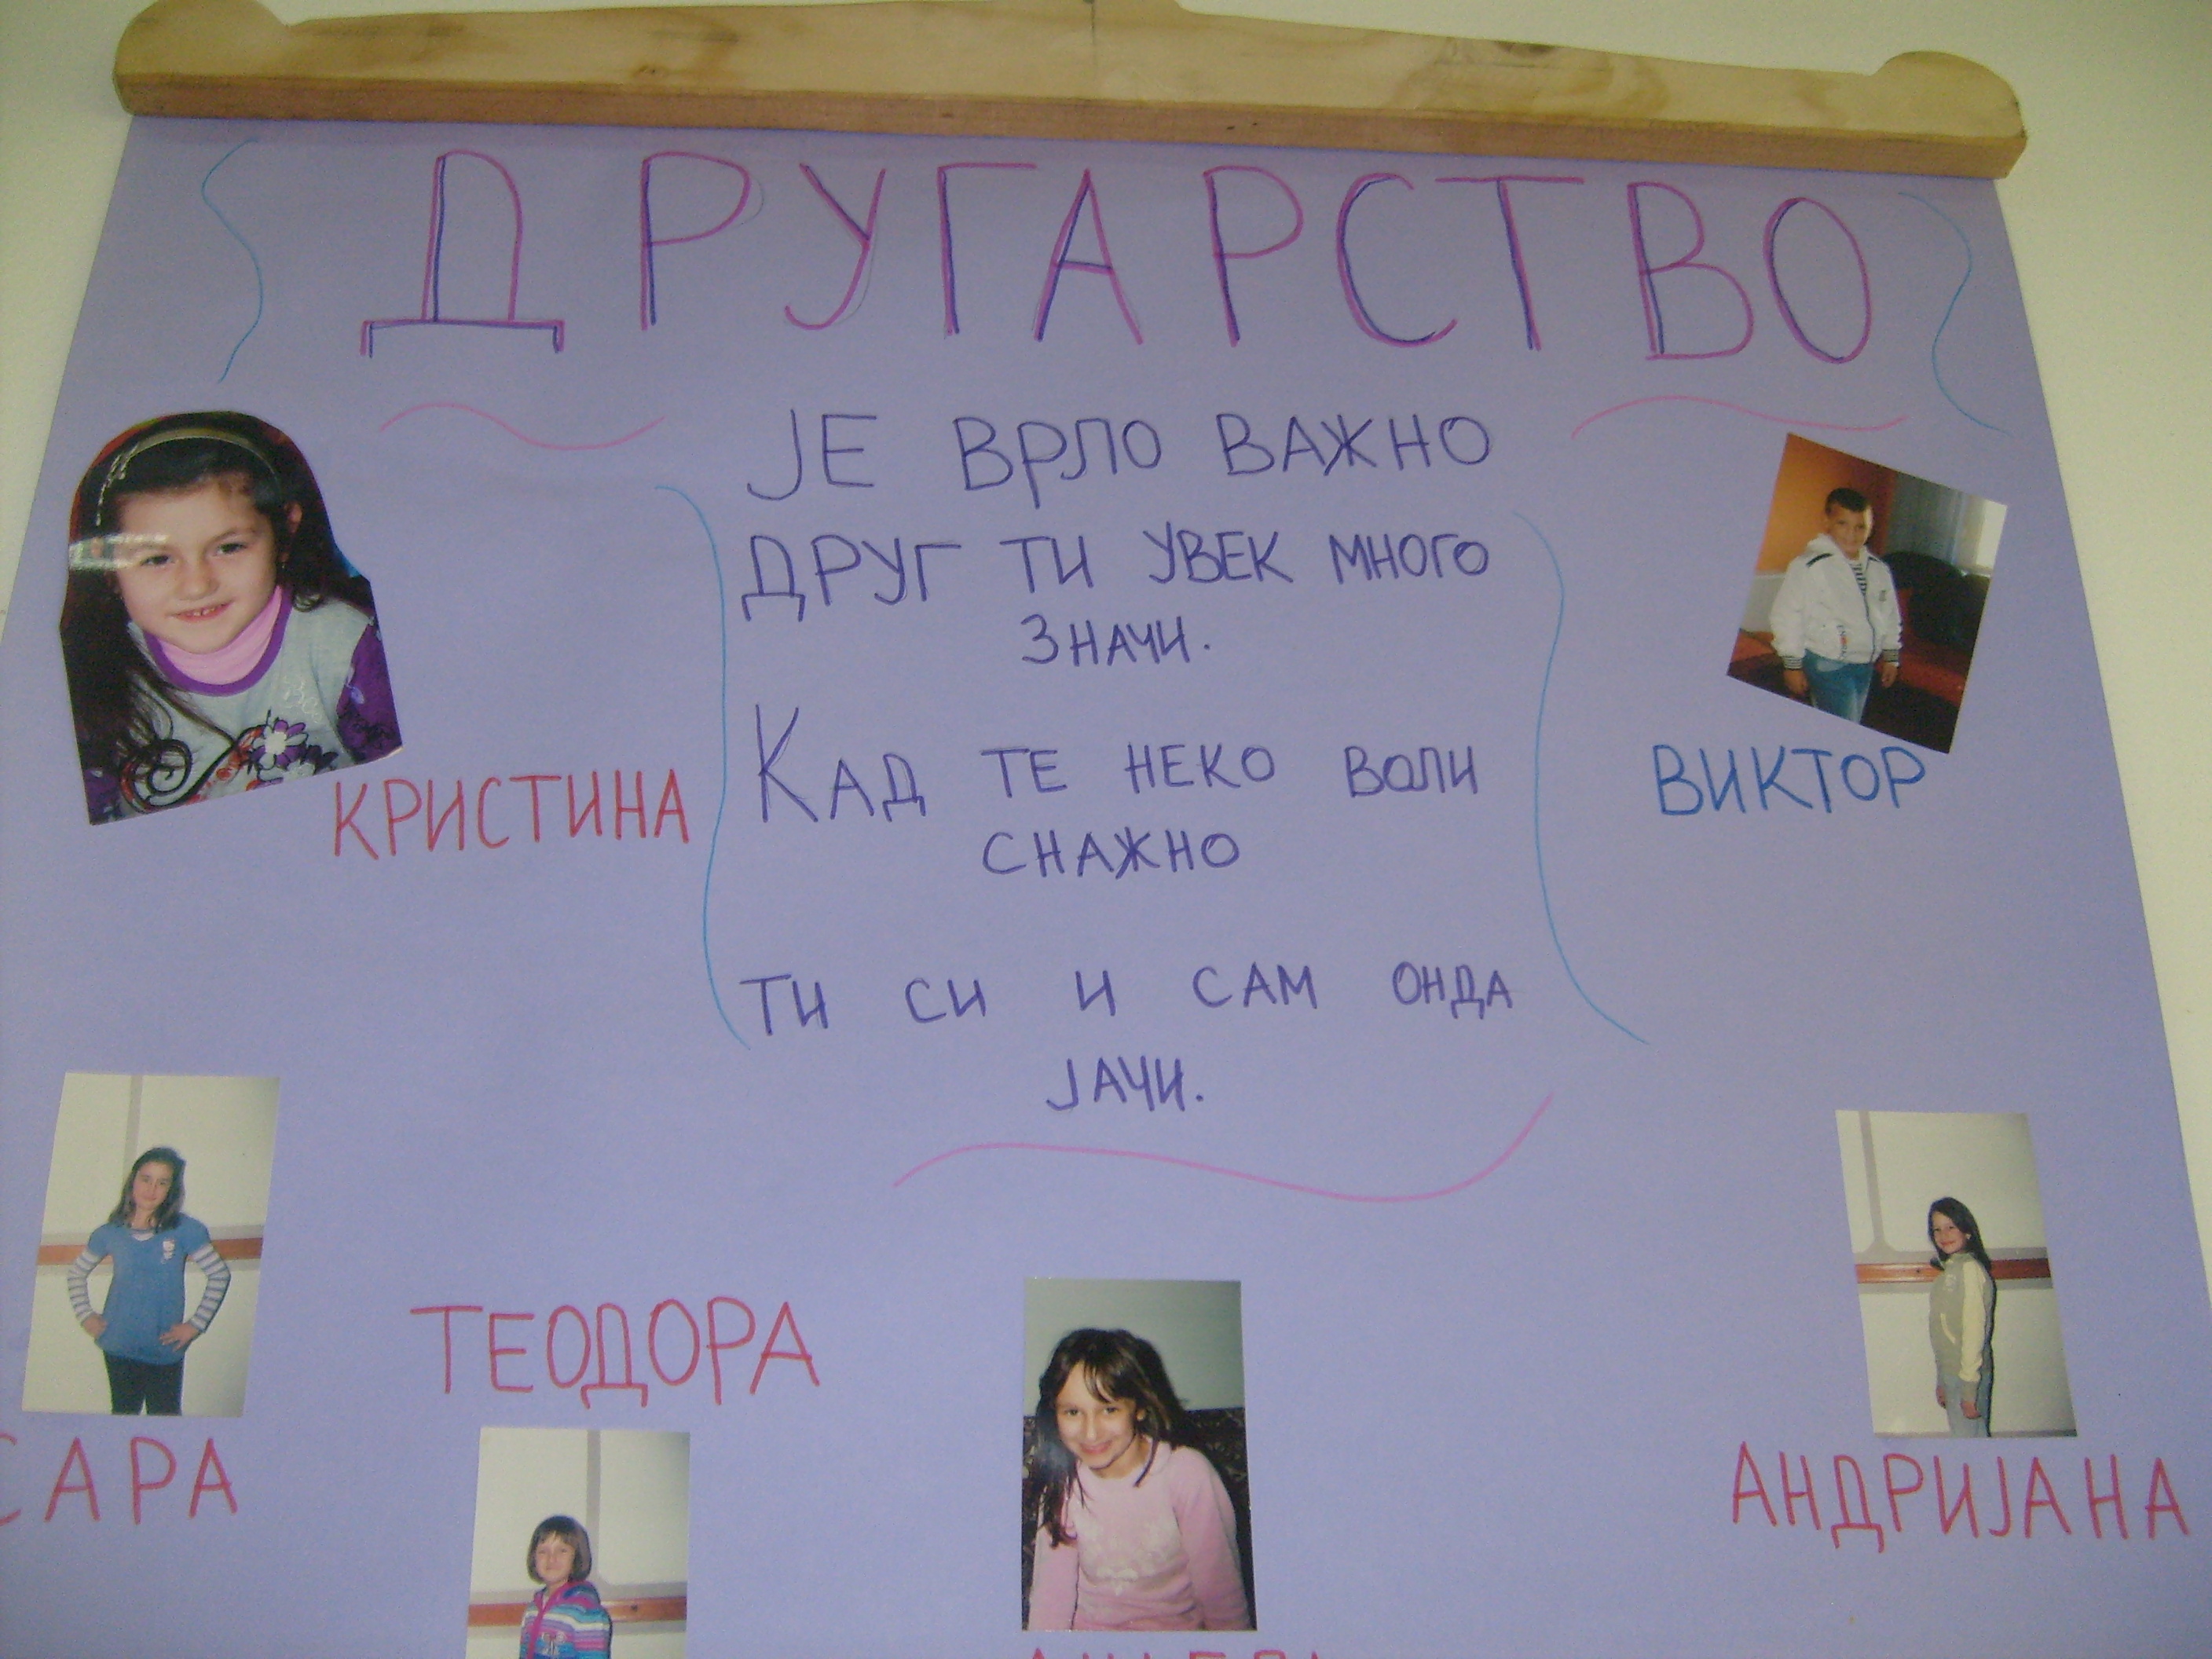 ДРУГАРСТВО
ЈЕ ВРЛО ВАЖНО
ДРУГ ТИ УВЕК МНОГО
ЗНАЧИ.
КАД ТЕ НЕКО ВОЛИ
СНАЖНО
ТИ СИ И САМ ОНДА
ЈАЧИ.
КРИСТИНА
ВИКТОР
САРА
ТЕОДОРА
АНДРИЈАНА